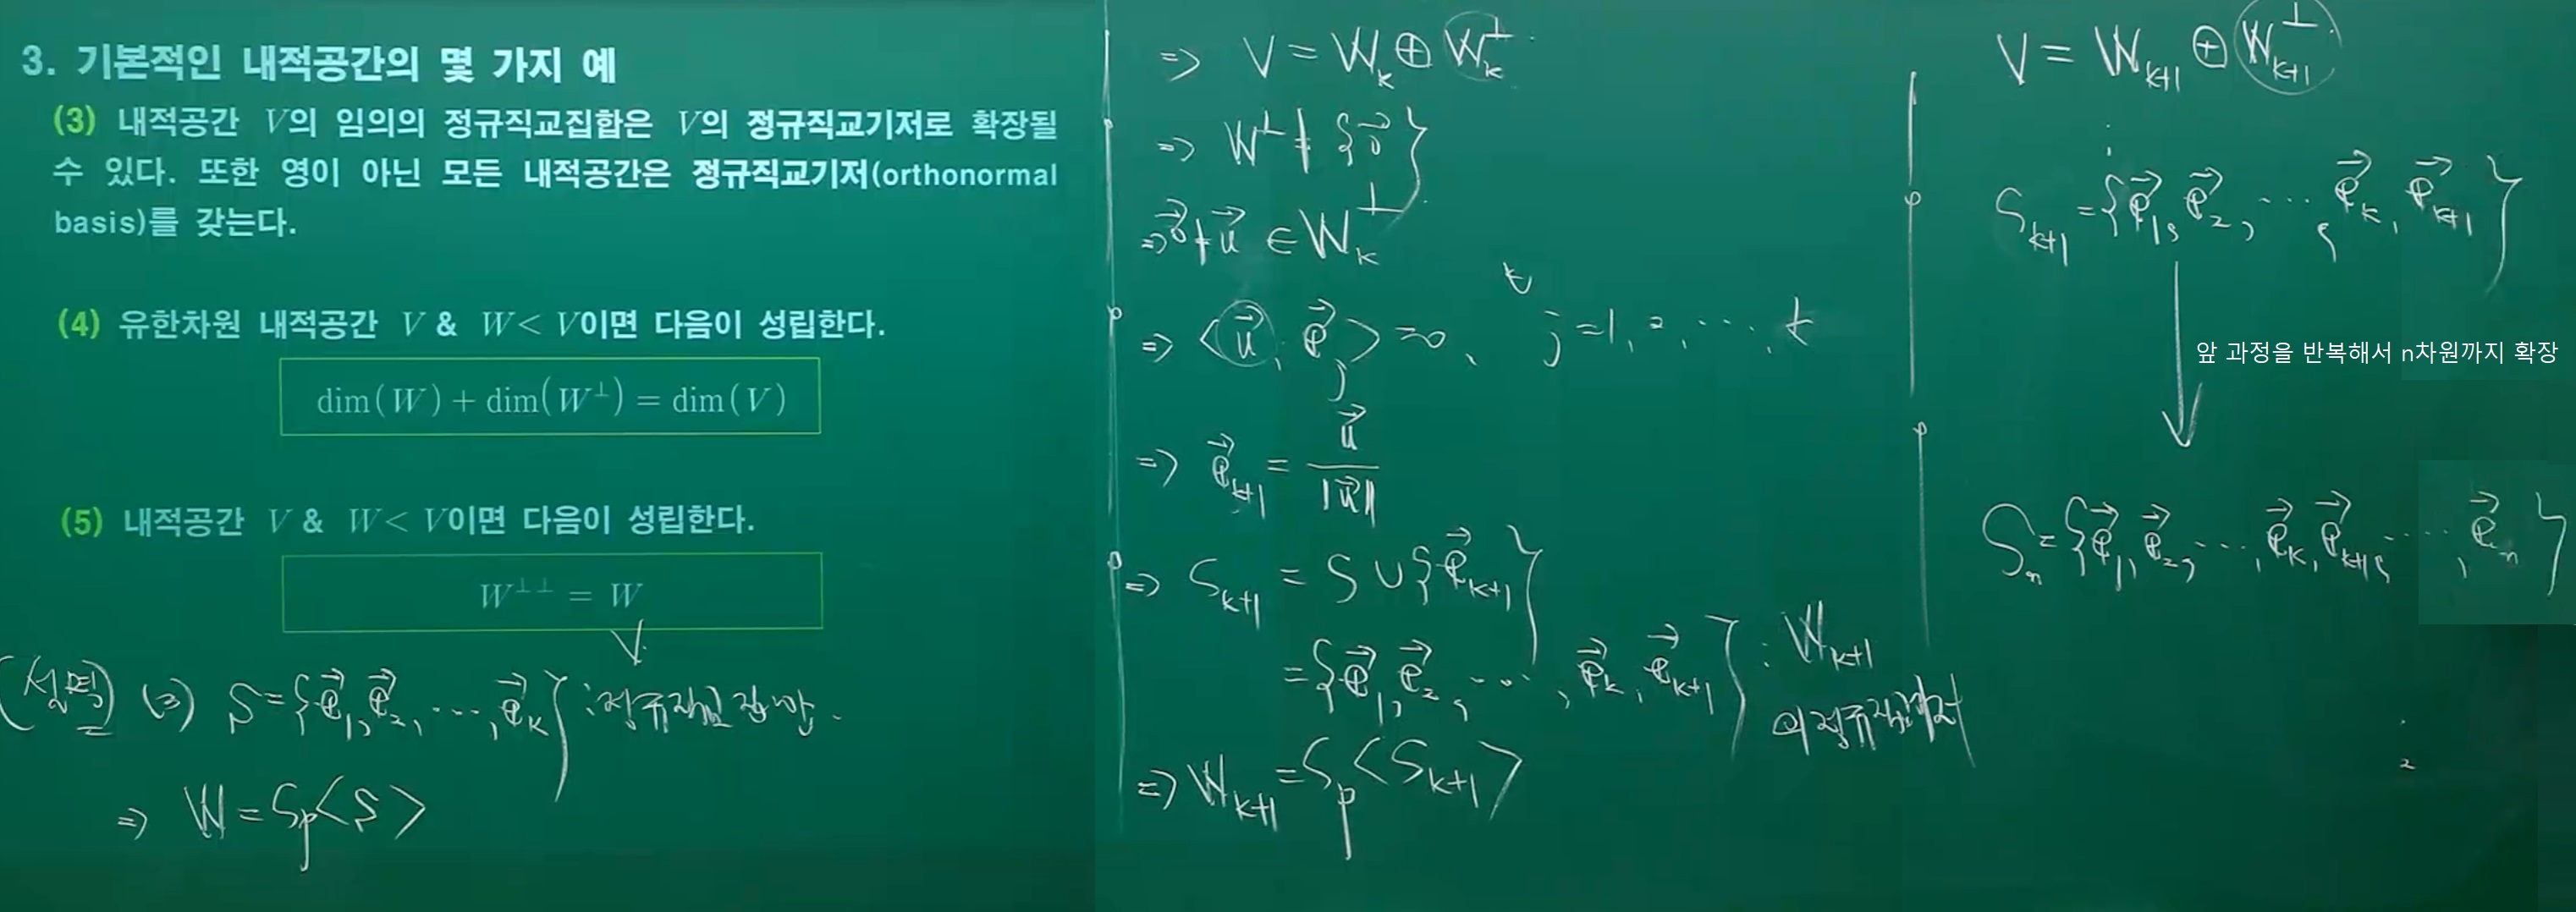 3. 기본적인 내적공간의 몇 가지 예
(3) 내적공간 V의 임의의 정규직교집합은 V의 정규직교기저로 확장될
수 있다. 또한 영이 아닌 모든 내적공간은 정규직교기저(orthonormal
basis)를 갖는다.
(4) 유한차원 내적공간 V & W < V이면 다음이 성립한다.
dim(W) + dim(W^⊥) = dim(V)
(5) 내적공간 V & W < V이면 다음이 성립한다.
W^⊥⊥ = W
(설명) (3) S = {e⃗₁, e⃗₂, ⋯, e⃗_k} : 정규직교집합.
⇒ W = Sp<S>
⇒ V = W_k ⊕ W_k^⊥.
⇒ W^⊥ ≠ {0⃗}
⇒ 0⃗ ≠ u⃗ ∈ W_k^⊥.
⇒ <u⃗, e⃗_j> = 0, j = 1, 2, ⋯, k
⇒ e⃗_{k+1} = u⃗ / ‖u⃗‖
⇒ S_{k+1} = S ∪ {e⃗_{k+1}}
= {e⃗₁, e⃗₂, ⋯, e⃗_k, e⃗_{k+1}} : W_{k+1}
의 정규직교기저
⇒ W_{k+1} = Sp<S_{k+1}>
V = W_{k+1} ⊕ W_{k+1}^⊥.
⋮
S_{k+1} = {e⃗₁, e⃗₂, ⋯, e⃗_k, e⃗_{k+1}}
앞 과정을 반복해서 n차원까지 확장
S_n = {e⃗₁, e⃗₂, ⋯, e⃗_k, e⃗_{k+1}, ⋯, e⃗_n}